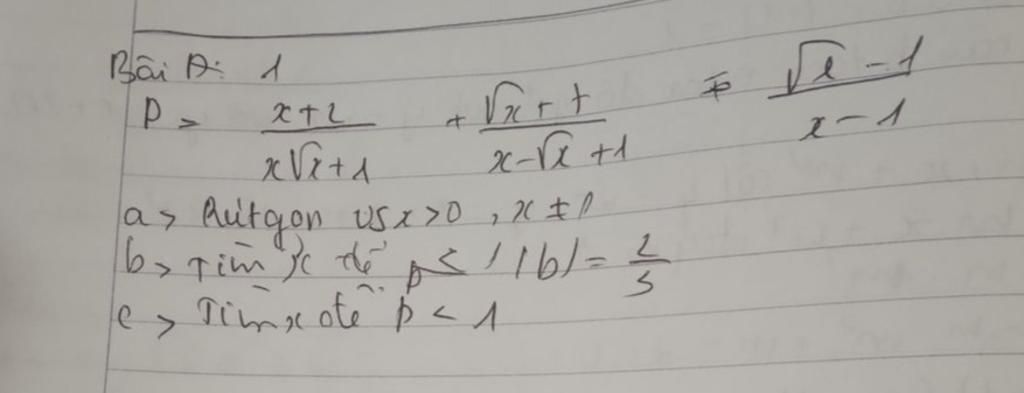 Bài A: 1
P = \frac{x+2}{x\sqrt{x}+1} + \frac{\sqrt{x}+1}{x-\sqrt{x}+1} \frac{\sqrt{x}-1}{x-1}
a> Rút gọn vs x>0, x ≠ 1
b> Tìm x để |b| = \frac{2}{3}
c> Tìm x để P < 1